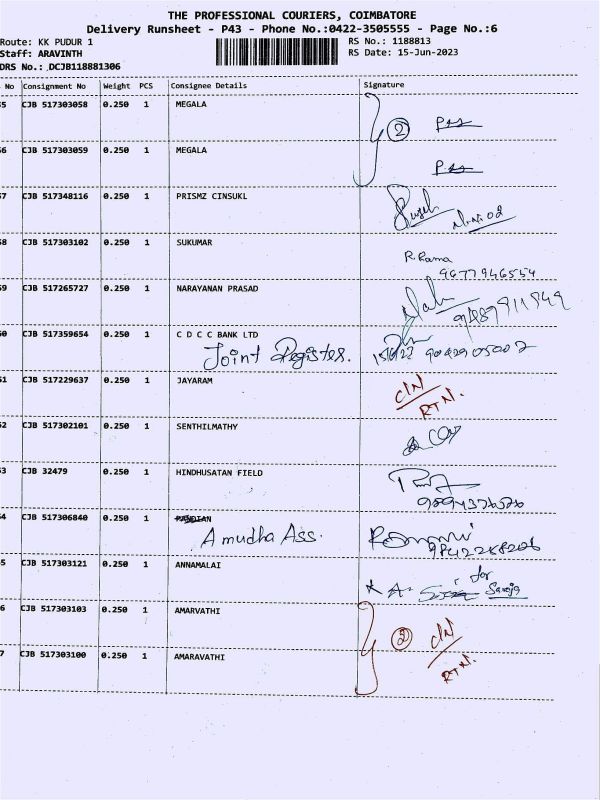 THE PROFESSIONAL COURIERS, COIMBATORE
Delivery Runsheet - P43 - Phone No.:0422-3505555 - Page No.:6
Route: KK PUDUR 1
Staff: ARAVINTH
DRS No.: DCJB118881306
RS No.: 1188813
RS Date: 15-Jun-2023
No Consignment No Weight PCS Consignee Details Signature
5 CJB 517303058 0.250 1 MEGALA
2
6 CJB 517303059 0.250 1 MEGALA
7 CJB 517348116 0.250 1 PRISMZ CINSUKL
8 CJB 517303102 0.250 1 SUKUMAR R. Rama
9677946554
9 CJB 517265727 0.250 1 NARAYANAN PRASAD
0 CJB 517359654 0.250 1 C D C C BANK LTD
Joint Register.
1 CJB 517229637 0.250 1 JAYARAM C/N
RTN.
2 CJB 517302101 0.250 1 SENTHILMATHY
3 CJB 32479 0.250 1 HINDHUSATAN FIELD
4 CJB 517306840 0.250 1
Amudha Ass.
5 CJB 517303121 0.250 1 ANNAMALAI
for
Saroja
6 CJB 517303103 0.250 1 AMARVATHI
2 C/N
RTN.
7 CJB 517303100 0.250 1 AMARAVATHI